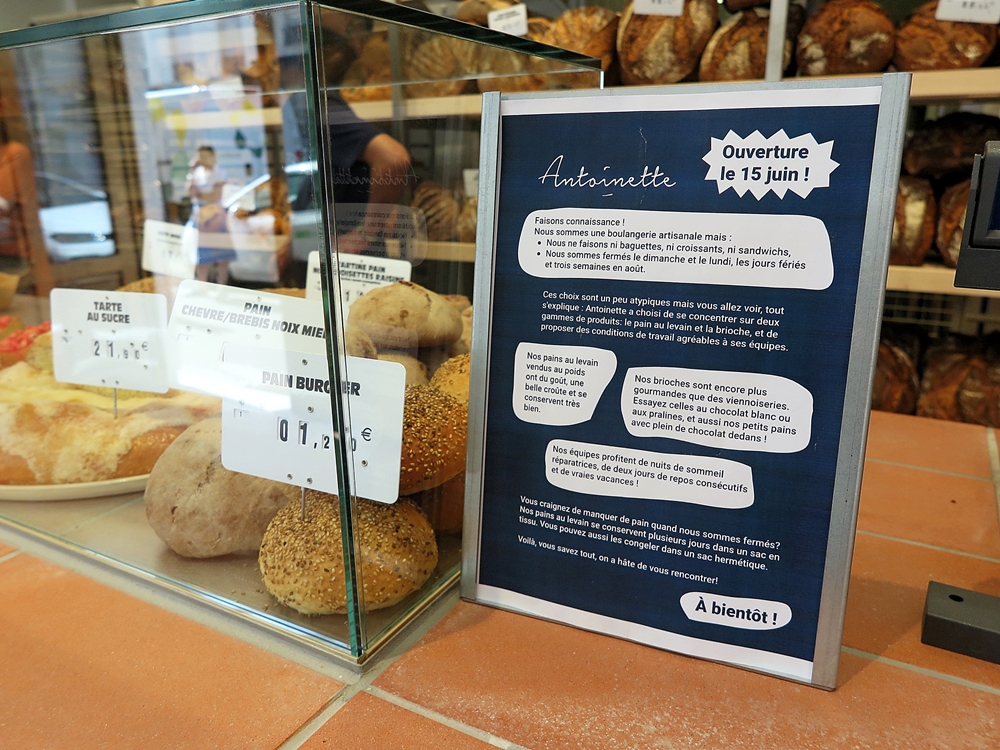 TARTE
AU SUCRE
21,90 €
PAIN
CHEVRE/BREBIS NOIX MIEL
PAIN BURGER
01,2 €
Antoinette
Ouverture
le 15 juin !
Faisons connaissance !
Nous sommes une boulangerie artisanale mais :
• Nous ne faisons ni baguettes, ni croissants, ni sandwichs,
• Nous sommes fermés le dimanche et le lundi, les jours fériés
et trois semaines en août.
Ces choix sont un peu atypiques mais vous allez voir, tout
s'explique : Antoinette a choisi de se concentrer sur deux
gammes de produits: le pain au levain et la brioche, et de
proposer des conditions de travail agréables à ses équipes.
Nos pains au levain
vendus au poids
ont du goût, une
belle croûte et se
conservent très
bien.
Nos brioches sont encore plus
gourmandes que des viennoiseries.
Essayez celles au chocolat blanc ou
aux pralines, et aussi nos petits pains
avec plein de chocolat dedans !
Nos équipes profitent de nuits de sommeil
réparatrices, de deux jours de repos consécutifs
et de vraies vacances !
Vous craignez de manquer de pain quand nous sommes fermés?
Nos pains au levain se conservent plusieurs jours dans un sac en
tissu. Vous pouvez aussi les congeler dans un sac hermétique.
Voilà, vous savez tout, on a hâte de vous rencontrer!
À bientôt !